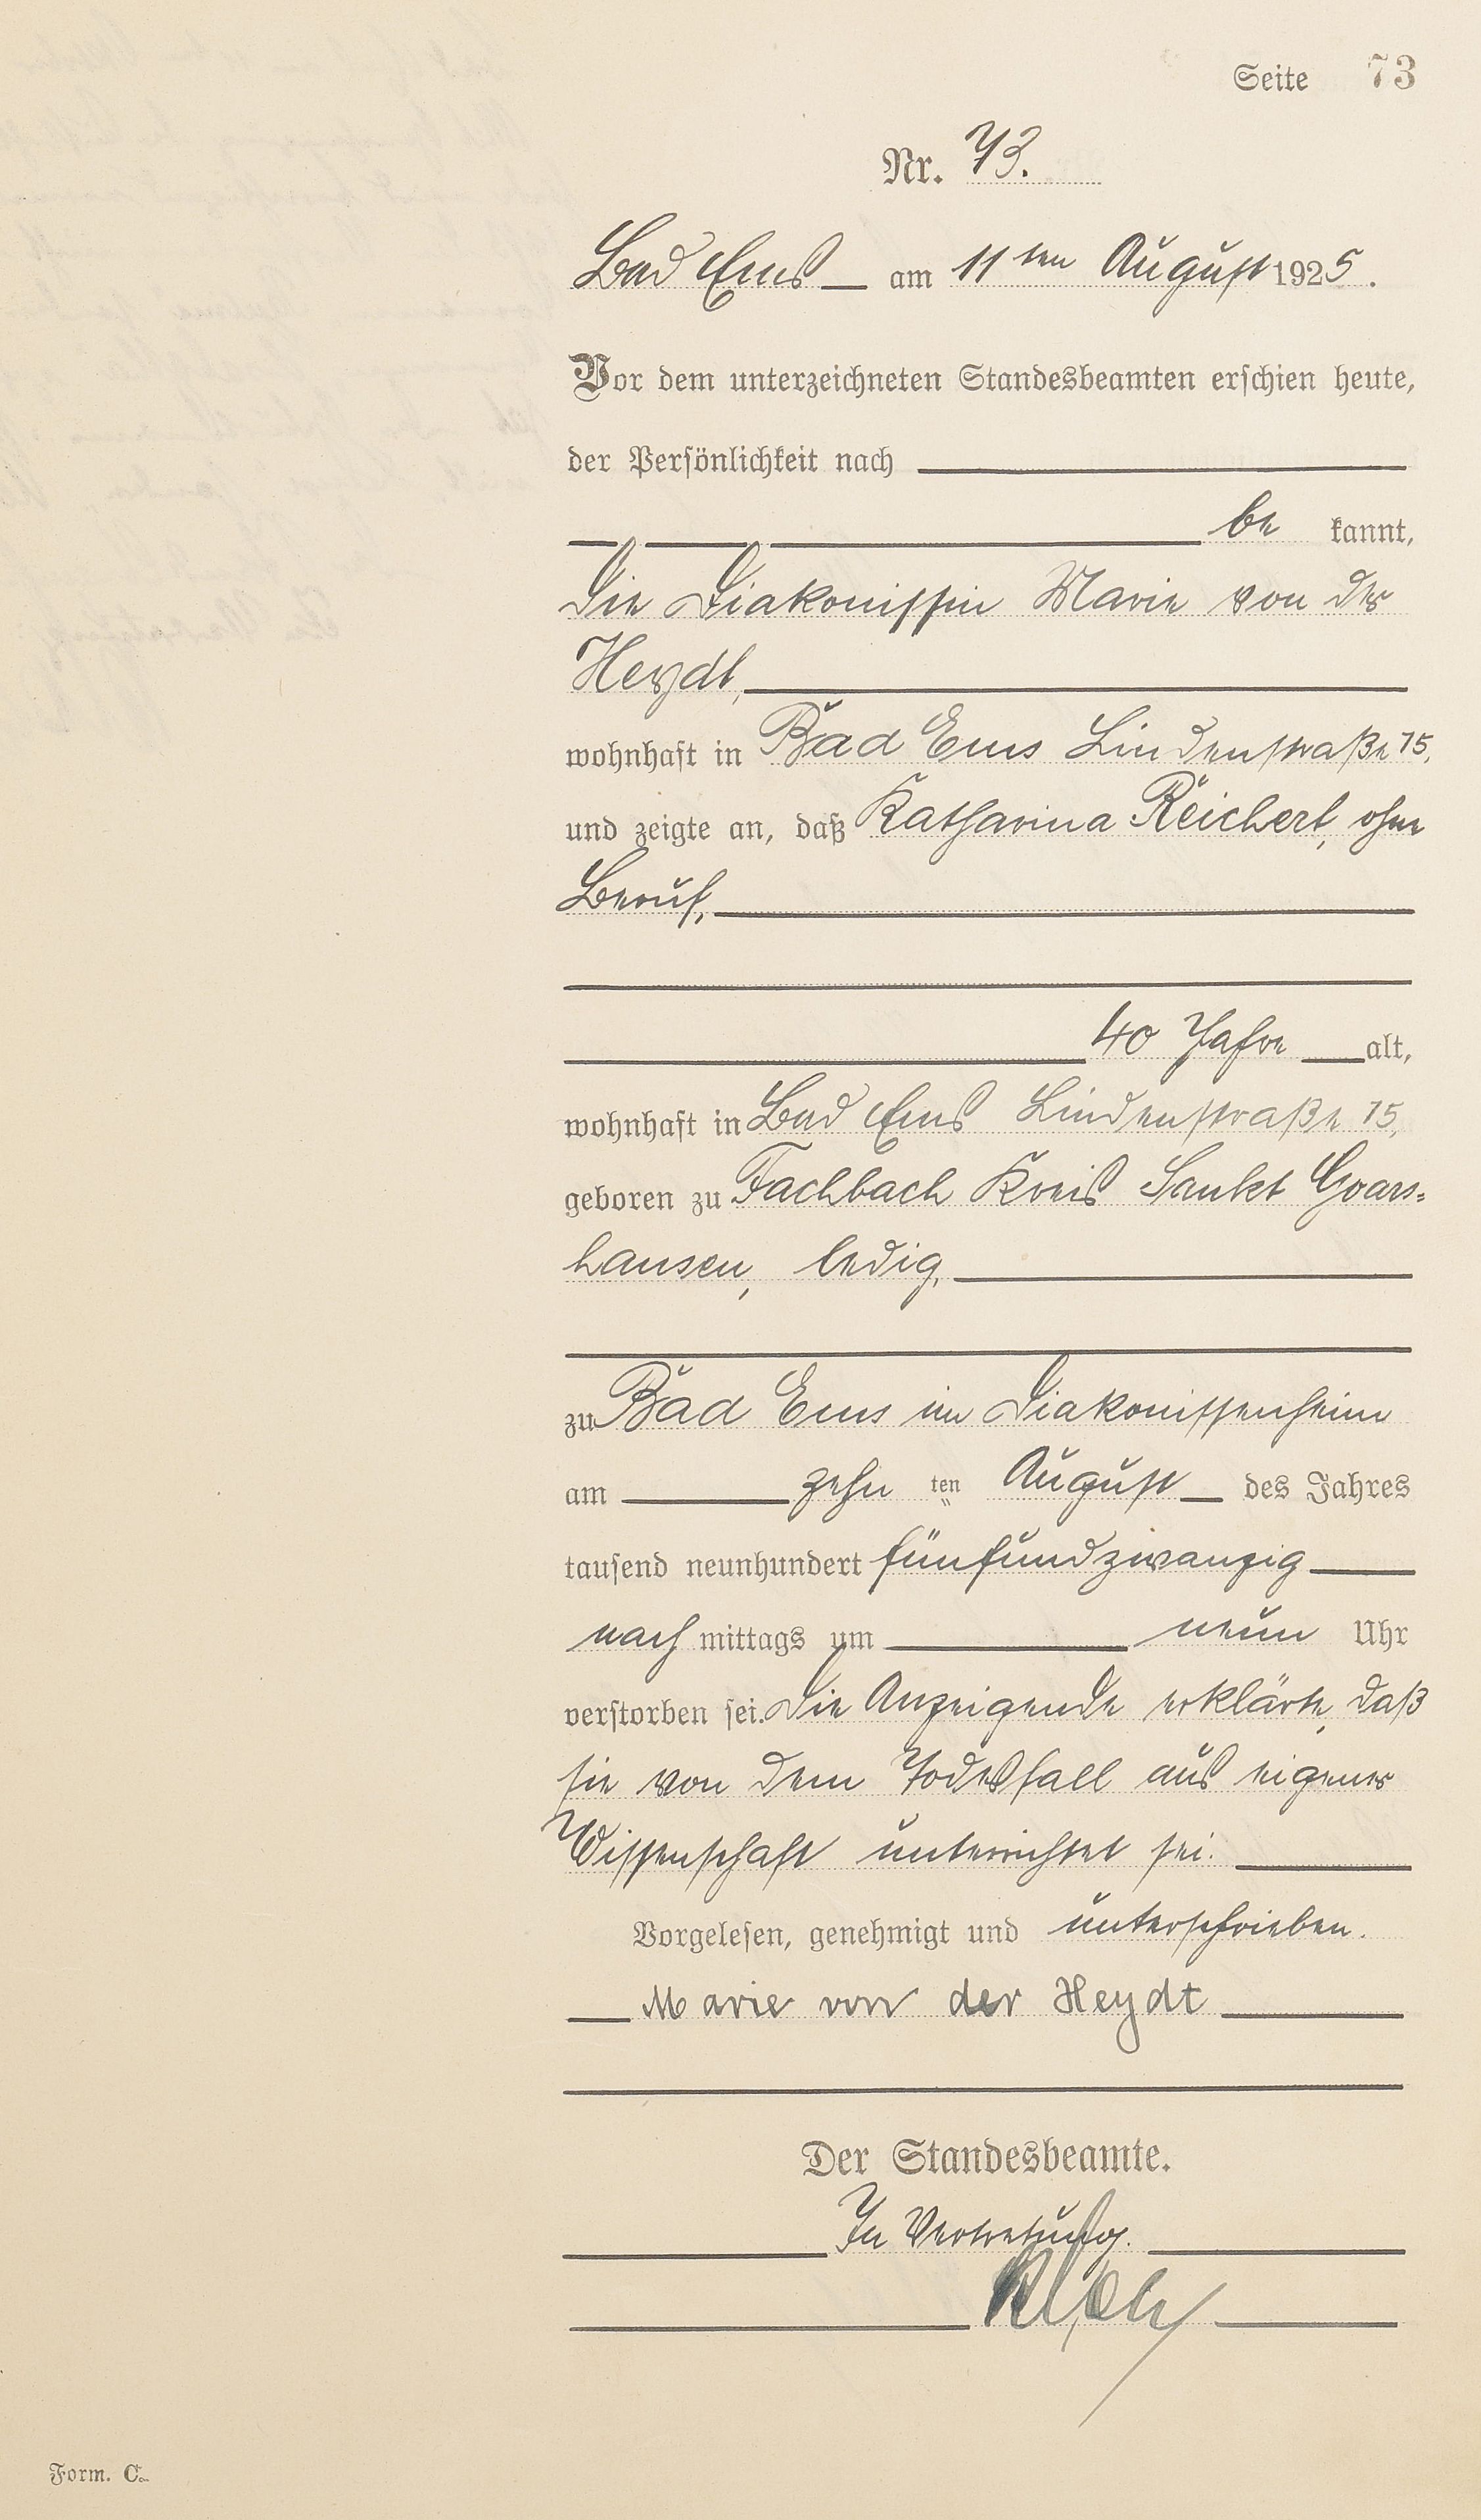 Seite 73
Nr. 73.
Bad Ems am 11ten August 1925.
Vor dem unterzeichneten Standesbeamten erschien heute,
der Persönlichkeit nach
be kannt,
die Diakonissin Marie von der
Heydt,
wohnhaft in Bad Ems Lindenstraße 15,
und zeigte an, daß Katharina Reichert, ohne
Beruf,
40 Jahre alt,
wohnhaft in Bad Ems Lindenstraße 15,
geboren zu Fachbach Kreis Sankt Goars-
hausen, ledig,
zu Bad Ems im Diakonissenheim
am zehn ten August des Jahres
tausend neunhundert fünfundzwanzig
nach mittags um neun Uhr
verstorben sei. Die Anzeigende erklärte, daß
sie von dem Todesfall aus eigener
Wissenschaft unterrichtet sei.
Vorgelesen, genehmigt und unterschrieben.
Marie von der Heydt
Der Standesbeamte.
In Vertretung.
Form. C.